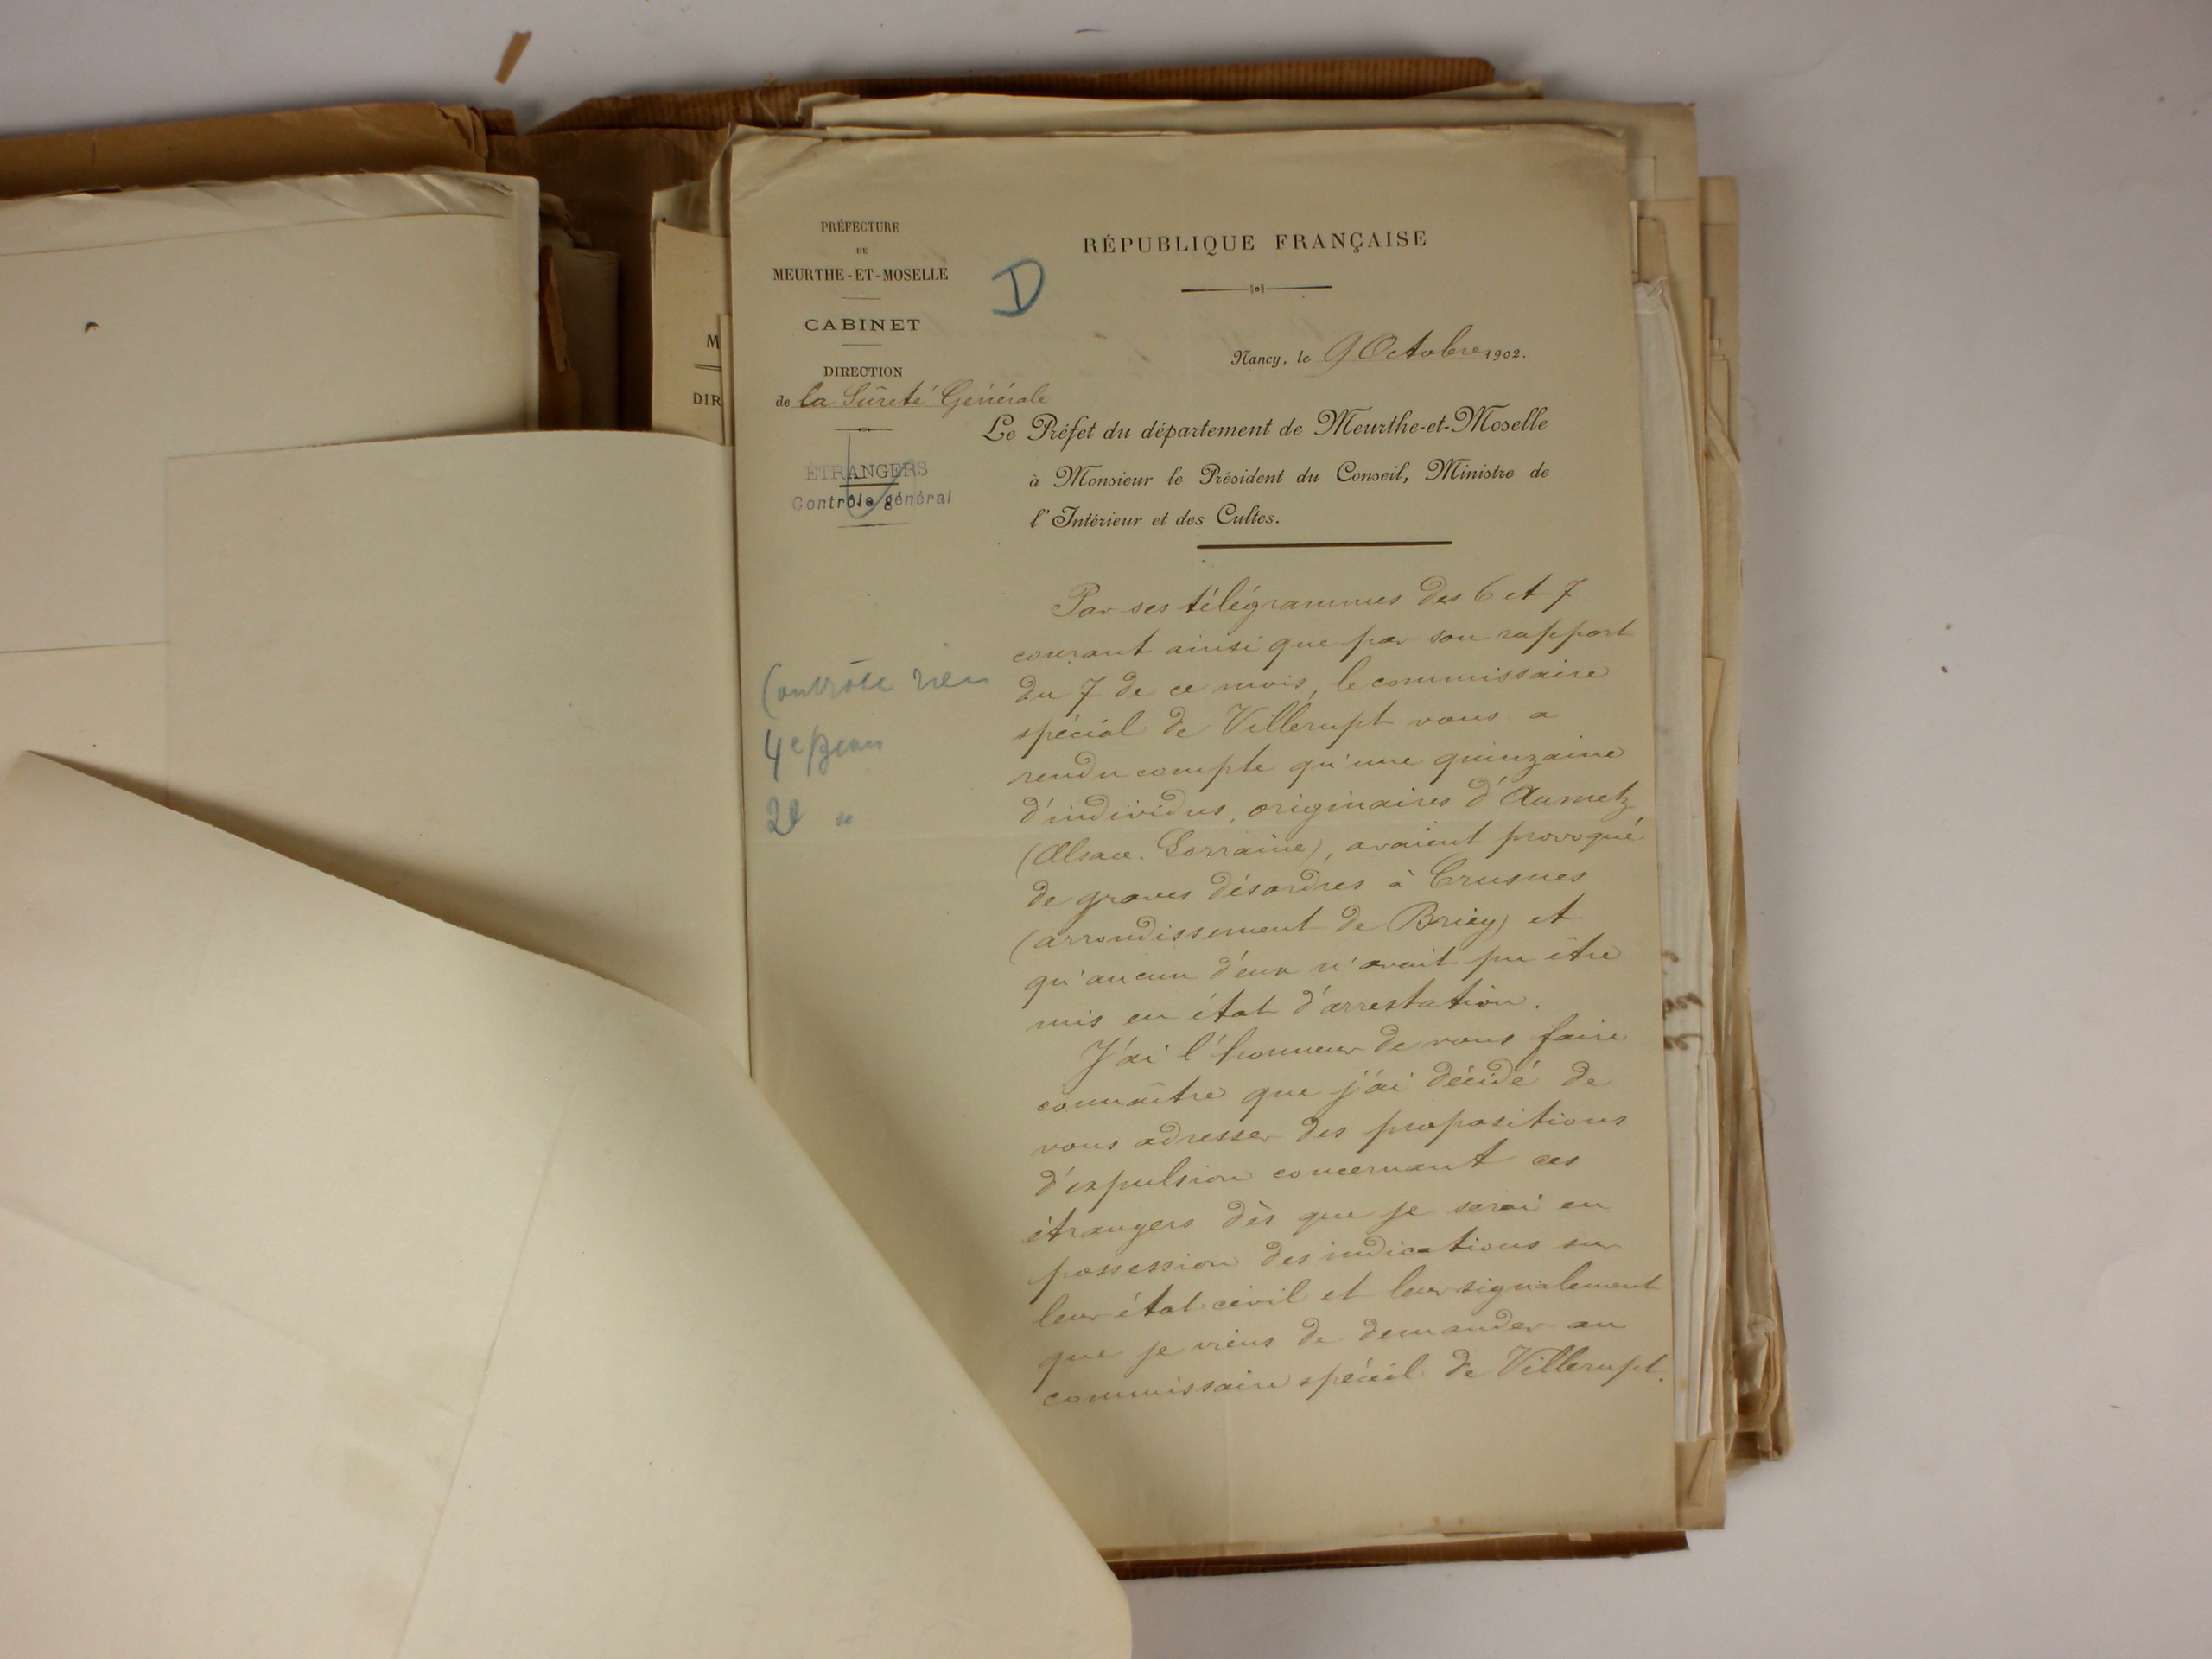 PRÉFECTURE
DE
MEURTHE-ET-MOSELLE
CABINET
DIRECTION
de la Sûreté Générale
ÉTRANGERS
Contrôle général
D
RÉPUBLIQUE FRANÇAISE
Nancy, le 9 Octobre 1902.
Le Préfet du département de Meurthe-et-Moselle
à Monsieur le Président du Conseil, Ministre de
l'Intérieur et des Cultes.
Contrôle rien
4e
2e
Par ses télégrammes des 6 et 7
courant ainsi que par son rapport
du 7 de ce mois, le commissaire
spécial de Villerupt vous a
rendu compte qu'une quinzaine
d'individus, originaires d'Aumetz
(Alsace-Lorraine), avaient provoqué
de graves désordres à Crusnes
(arrondissement de Briey) et
qu'aucun d'eux n'avait pu être
mis en état d'arrestation.
J'ai l'honneur de vous faire
connaître que j'ai décidé de
vous adresser des propositions
d'expulsion concernant ces
étrangers dès que je serai en
possession des indications sur
leur état civil et leur signalement
que je viens de demander au
commissaire spécial de Villerupt.
M
DIR